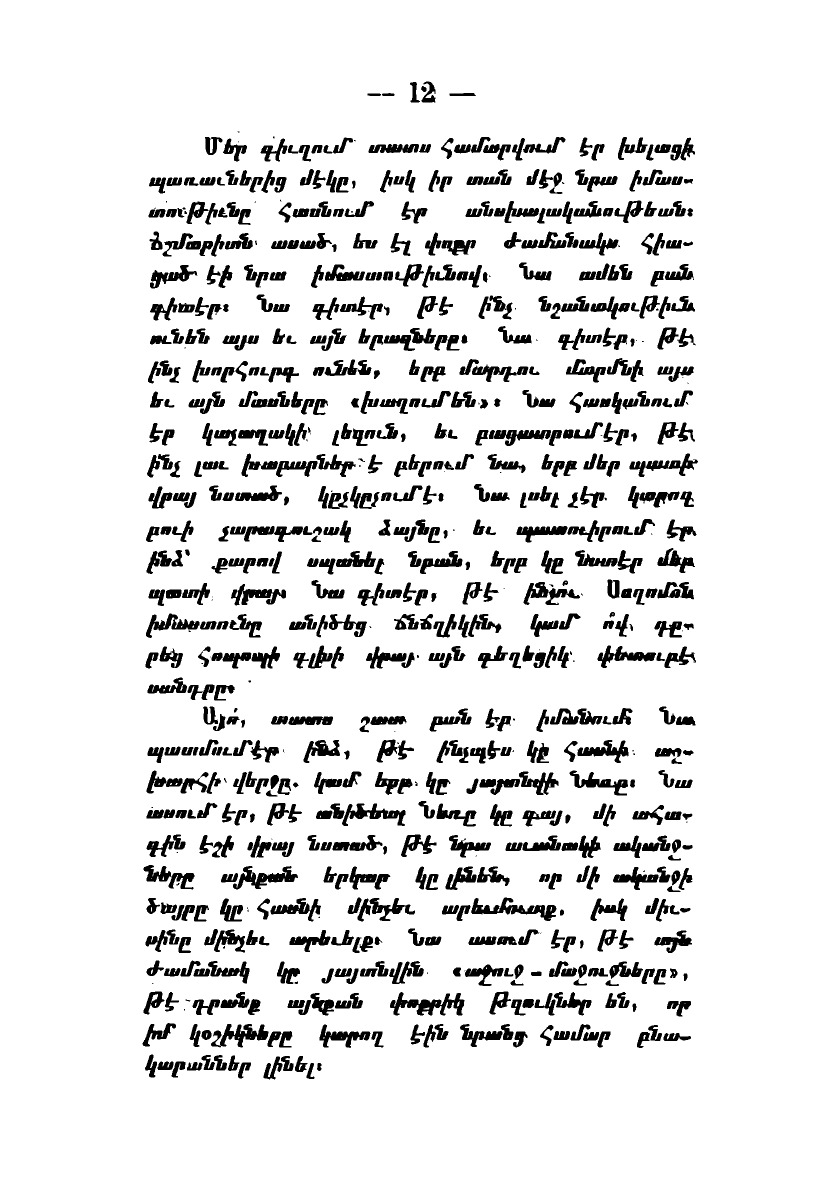 — 12 —
Մեր գիւղում տատս համարվում էր խելացի
պառաւներից մէկը, իսկ իր տան մէջ նրա իմաս-
տութիւնը հասնում էր անսխալականութեան։
Ճշմարիտն ասած, ես էլ փոքր ժամանակս հիա-
ցած էի նրա իմաստութիւնով։ Նա ամեն բան
գիտէր։ Նա գիտէր, թէ ի՛նչ նշանակութիւն
ունեն այս եւ այն երազները։ Նա գիտէր, թէ
ինչ խորհուրդ ունեն, երբ մարդու մարմնի այս
եւ այն մասները «խաղում են»։ Նա հասկանում
էր կաչաղակի լեզուն, եւ բացատրում էր, թէ
ի՛նչ լաւ խաբարներ է բերում նա, երբ մեր պատի
վրայ նստած, կըչկըչում է։ Նա լսել չէր կարող
բուի չարագուշակ ձայնը, եւ պատուիրում էր
ինձ՝ քարով սպանել նրան, երբ կը նստէր մեր
պատի վրայ։ Նա գիտէր, թէ ինչո՛ւ Սաղոմոն
իմաստունը անիծեց ճնճղիկին, կամ ո՛վ դը-
րեց հոպոպի գլխի վրայ այն գեղեցիկ փետուրէ
սանդրը։
Այո՛, տատս շատ բան էր իմանում։ Նա
պատմում էր ինձ, թէ ինչպէս կը հասնի աշ-
խարհի վերջը. կամ երբ կը յայտնվի Նեռը։ Նա
ասում էր, թէ անիծեալ Նեռը կը գայ, մի ահա-
գին էշի վրայ նստած, թէ նրա աւանակի ականջ-
ները այնքան երկար կը լինեն, որ մի ականջի
ծայրը կը հասնի մինչեւ արեւմուտք, իսկ միւ-
սինը մինչեւ արեւելք։ Նա ասում էր, թէ այն
ժամանակ կը յայտնվին «աջուջ-մաջուջները»,
թէ դրանք այնքան փոքրիկ թզուկներ են, որ
իմ կօշիկները կարող էին նրանց համար բնա-
կարաններ լինել։